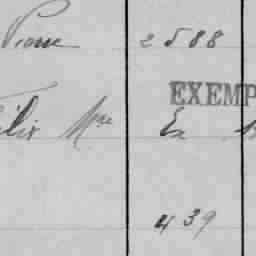 Pierre 2588
EXEMP
Félix Mme Ex
439